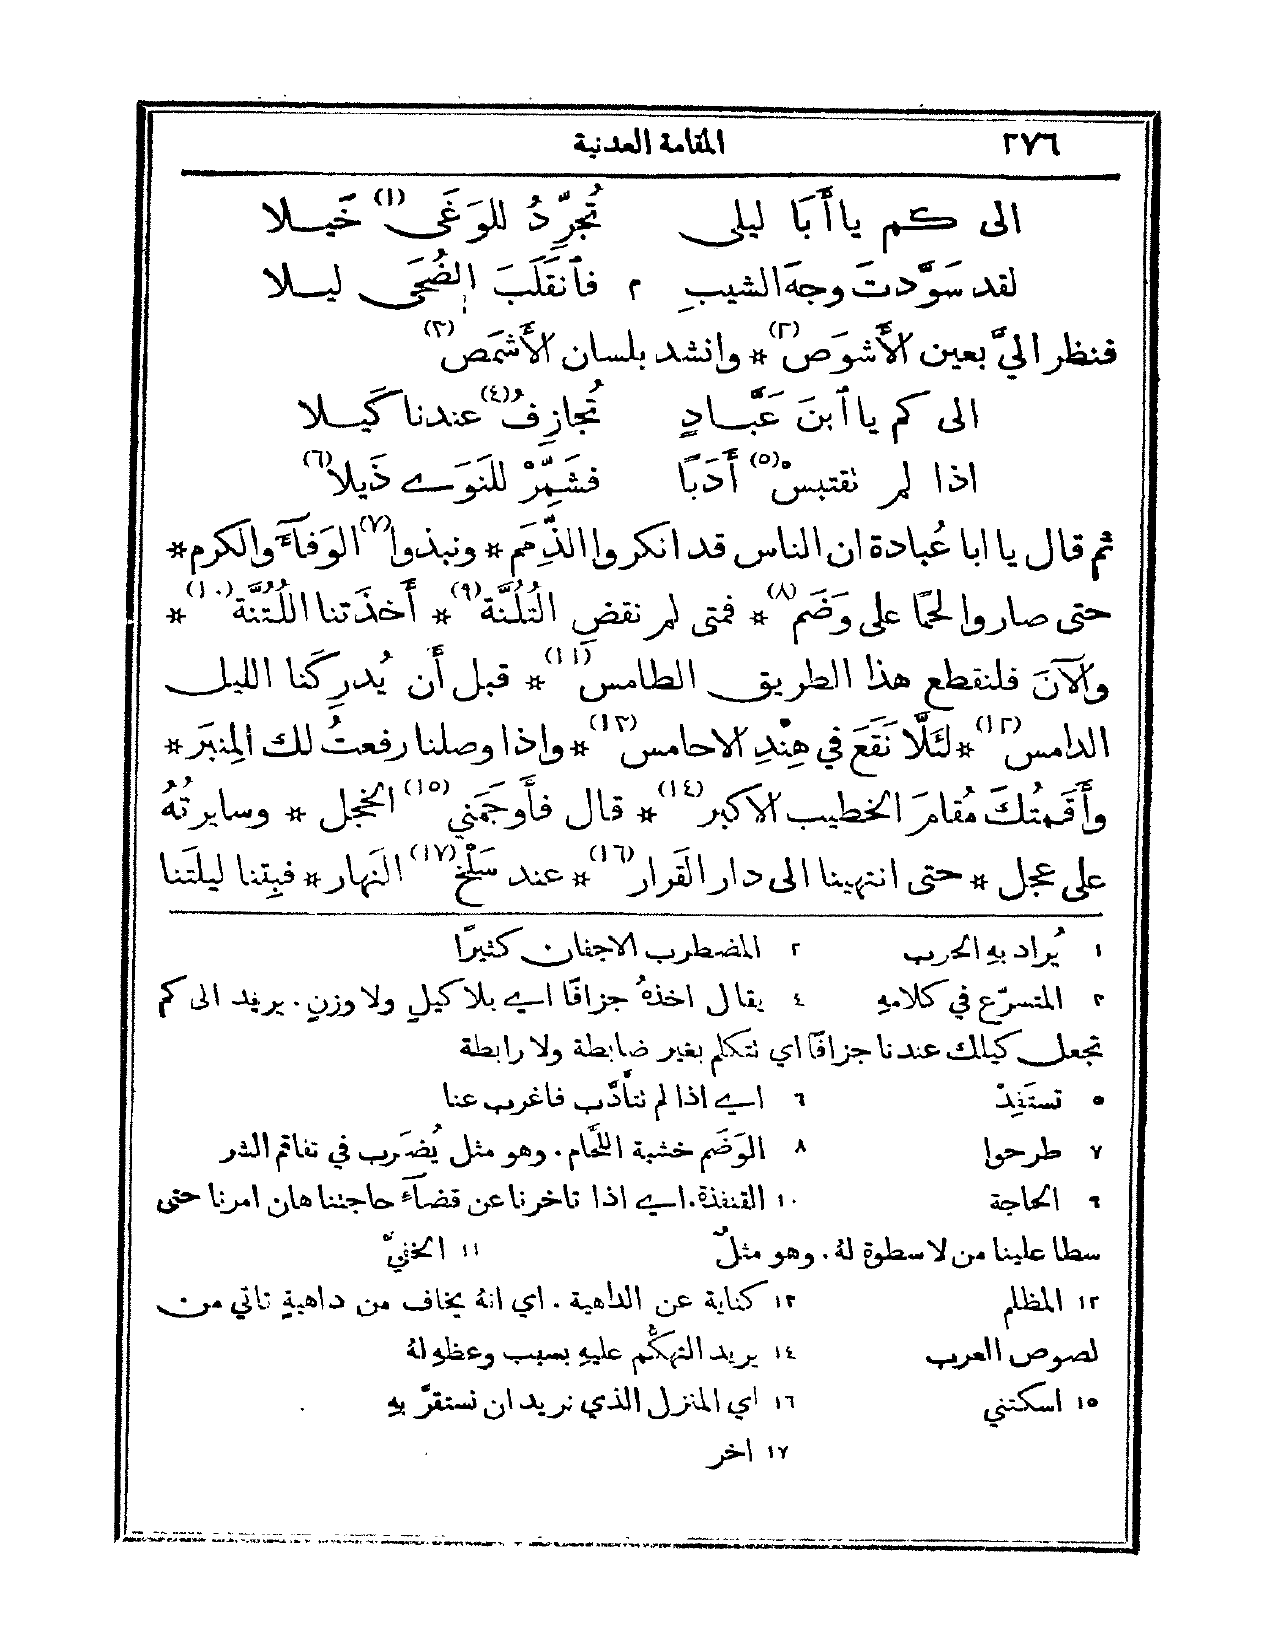 ٢٧٦ المقامة العدنية
الى كم يا أَبَا ليلى تُجَرِّدُ للوَغَى (١) خَيلا
لقد سَوَّدتَ وجهَ الشيبِ م فأنقَلَبَ الضُحَى ليلا
فنظر اليَّ بعين الأَشوَص (٢) * وانشد بلسان الأَشمَص (٣)
الى كم يا أبنَ عَبَّادٍ تُجازِفُ (٤) عندنا كَيلا
اذا لم نقتبسْ (٥) أَدَبًا فشَمِّرْ للنَوَے ذَيلا (٦)
ثم قال يا ابا عُبادة ان الناس قد انكروا الذِّمَم * ونبذوا (٧) الوَفآءَ والكرم *
حتى صاروا لحمًا على وَضَم (٨) * فمتى لم نقضِ التُلُنَّة (٩) * أَخذَتنا اللُتُنَّة (١٠) *
والآنَ فلنقطع هذا الطريق الطامس (١١) * قبل أَن يُدرِكَنا الليل
الدامس (١٢) * لئَلَّا نَقَعَ في هِنْدِ الاحامس (١٣) * واذا وصلنا رفعتُ لك المِنبَر *
وأَقَمتُكَ مُقامَ الخطيب الاكبر (١٤) * قال فأَوجَمَني (١٥) الخجل * وسايرتُهُ
على عجل * حتى انتهينا الى دار القَرار (١٦) * عند سَلْخ (١٧) النَهار * فبِتنا ليلتَنا
١ يُراد بهِ الحرب ٢ المضطرب الاجفان كثيرًا
٣ المتسرّع في كلامهِ ٤ يقال اخذهُ جزافًا اے بلا كيلٍ ولا وزنٍ. يريد الى كم
تجعل كيلك عندنا جزافًا اي نتكلم بغير ضابطة ولا رابطة
٥ تستَفِدْ ٦ اے اذا لم نتأَدَّب فاغرب عنا
٧ طرحوا ٨ الوَضَم خشبة اللَّحَّام. وهو مثل يُضرَب في تفاقم الشر
٩ الحاجة ١٠ القنفذة. اے اذا تاخرنا عن قضآءِ حاجتنا هان امرنا حتى
سطا علينا من لا سطوة لهُ. وهو مثلٌ ١١ الخفيّ
١٢ المظلم ١٣ كناية عن الداهية. اي انهُ يخاف من داهيةٍ تاتي من
لصوص العرب ١٤ يريد التهكُّم عليهِ بسبب وعظهِ لهُ
١٥ اسكتني ١٦ اي المنزل الذي نريد ان نستقرَّ بهِ
١٧ اخر